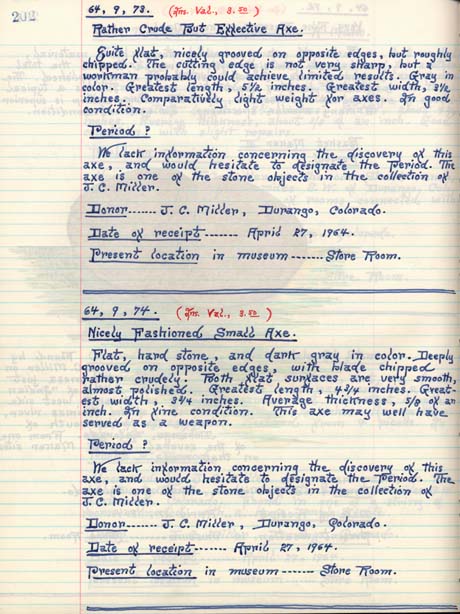 202
64, 9, 73. (Ins. Val., 3.50)
Rather Crude But Effective Axe.
Quite flat, nicely grooved on opposite edges, but roughly
chipped. The cutting edge is not very sharp, but a
workman probably could achieve limited results. Gray in
color. Greatest length, 5½ inches. Greatest width, 3½
inches. Comparatively light weight for axes. In good
condition.
Period ?
We lack information concerning the discovery of this
axe, and would hesitate to designate the Period. The
axe is one of the stone objects in the collection of
J. C. Miller.
Donor....... J. C. Miller, Durango, Colorado.
Date of receipt------- April 27, 1964.
Present location in museum------ Store Room.
64, 9, 74. (Ins. Val., 3.50)
Nicely Fashioned Small Axe.
Flat, hard stone, and dark gray in color. Deeply
grooved on opposite edges, with blade chipped
rather crudely. Both flat surfaces are very smooth,
almost polished. Greatest length, 4¾ inches. Great-
est width, 3¼ inches. Average thickness, 5/8 of an
inch. In fine condition. This axe may well have
served as a weapon.
Period ?
We lack information concerning the discovery of this
axe, and would hesitate to designate the Period. The
axe is one of the stone objects in the collection of
J. C. Miller.
Donor------- J. C. Miller, Durango, Colorado.
Date of receipt------- April 27, 1964.
Present location in museum------ Store Room.